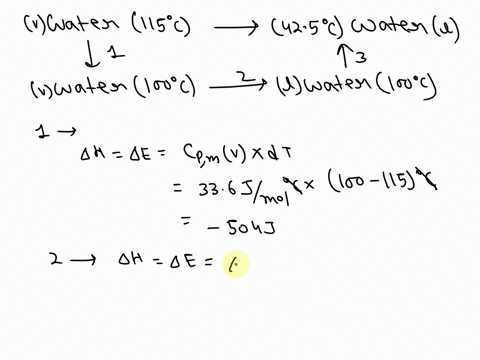 (v)water (115°C) → (42.5°C) water (l)
↓ 1 ↑ 3
(v)water (100°C) 2→ (l)water (100°C)
1 →
ΔH = ΔE = Cp,m(v) × dT
= 33.6 J/mol°C × (100-115)°C
= -504J
2 → ΔH = ΔE = (